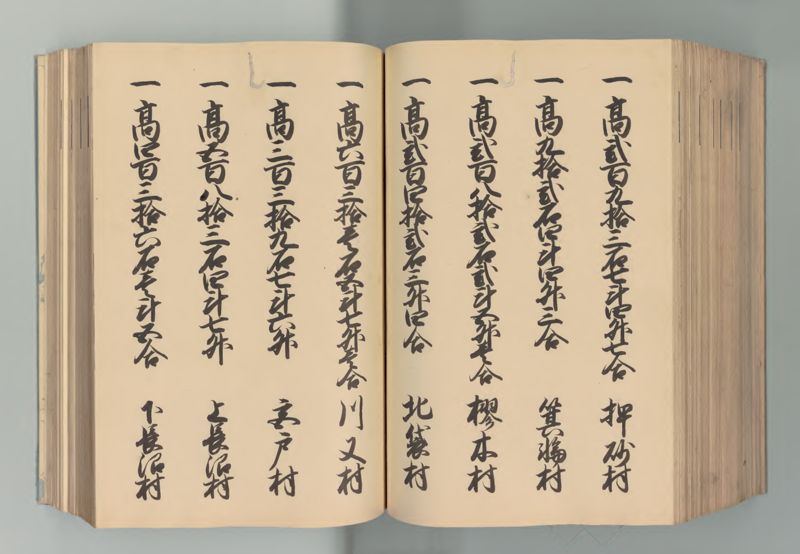 一 高弐百九拾三石七斗四升七合 押砂村
一 高九拾弐石四斗四升三合 箕輪村
一 高弐百八拾弐石弐斗五升壱合 樛木村
一 高弐百四拾弐石三升四合 北袋村
一 高六百三拾壱石五斗七升壱合 川又村
一 高二百三拾九石七斗六升 宮戸村
一 高五百八拾三石四斗七升 上長沼村
一 高四百三拾六石壱斗五合 下長沼村